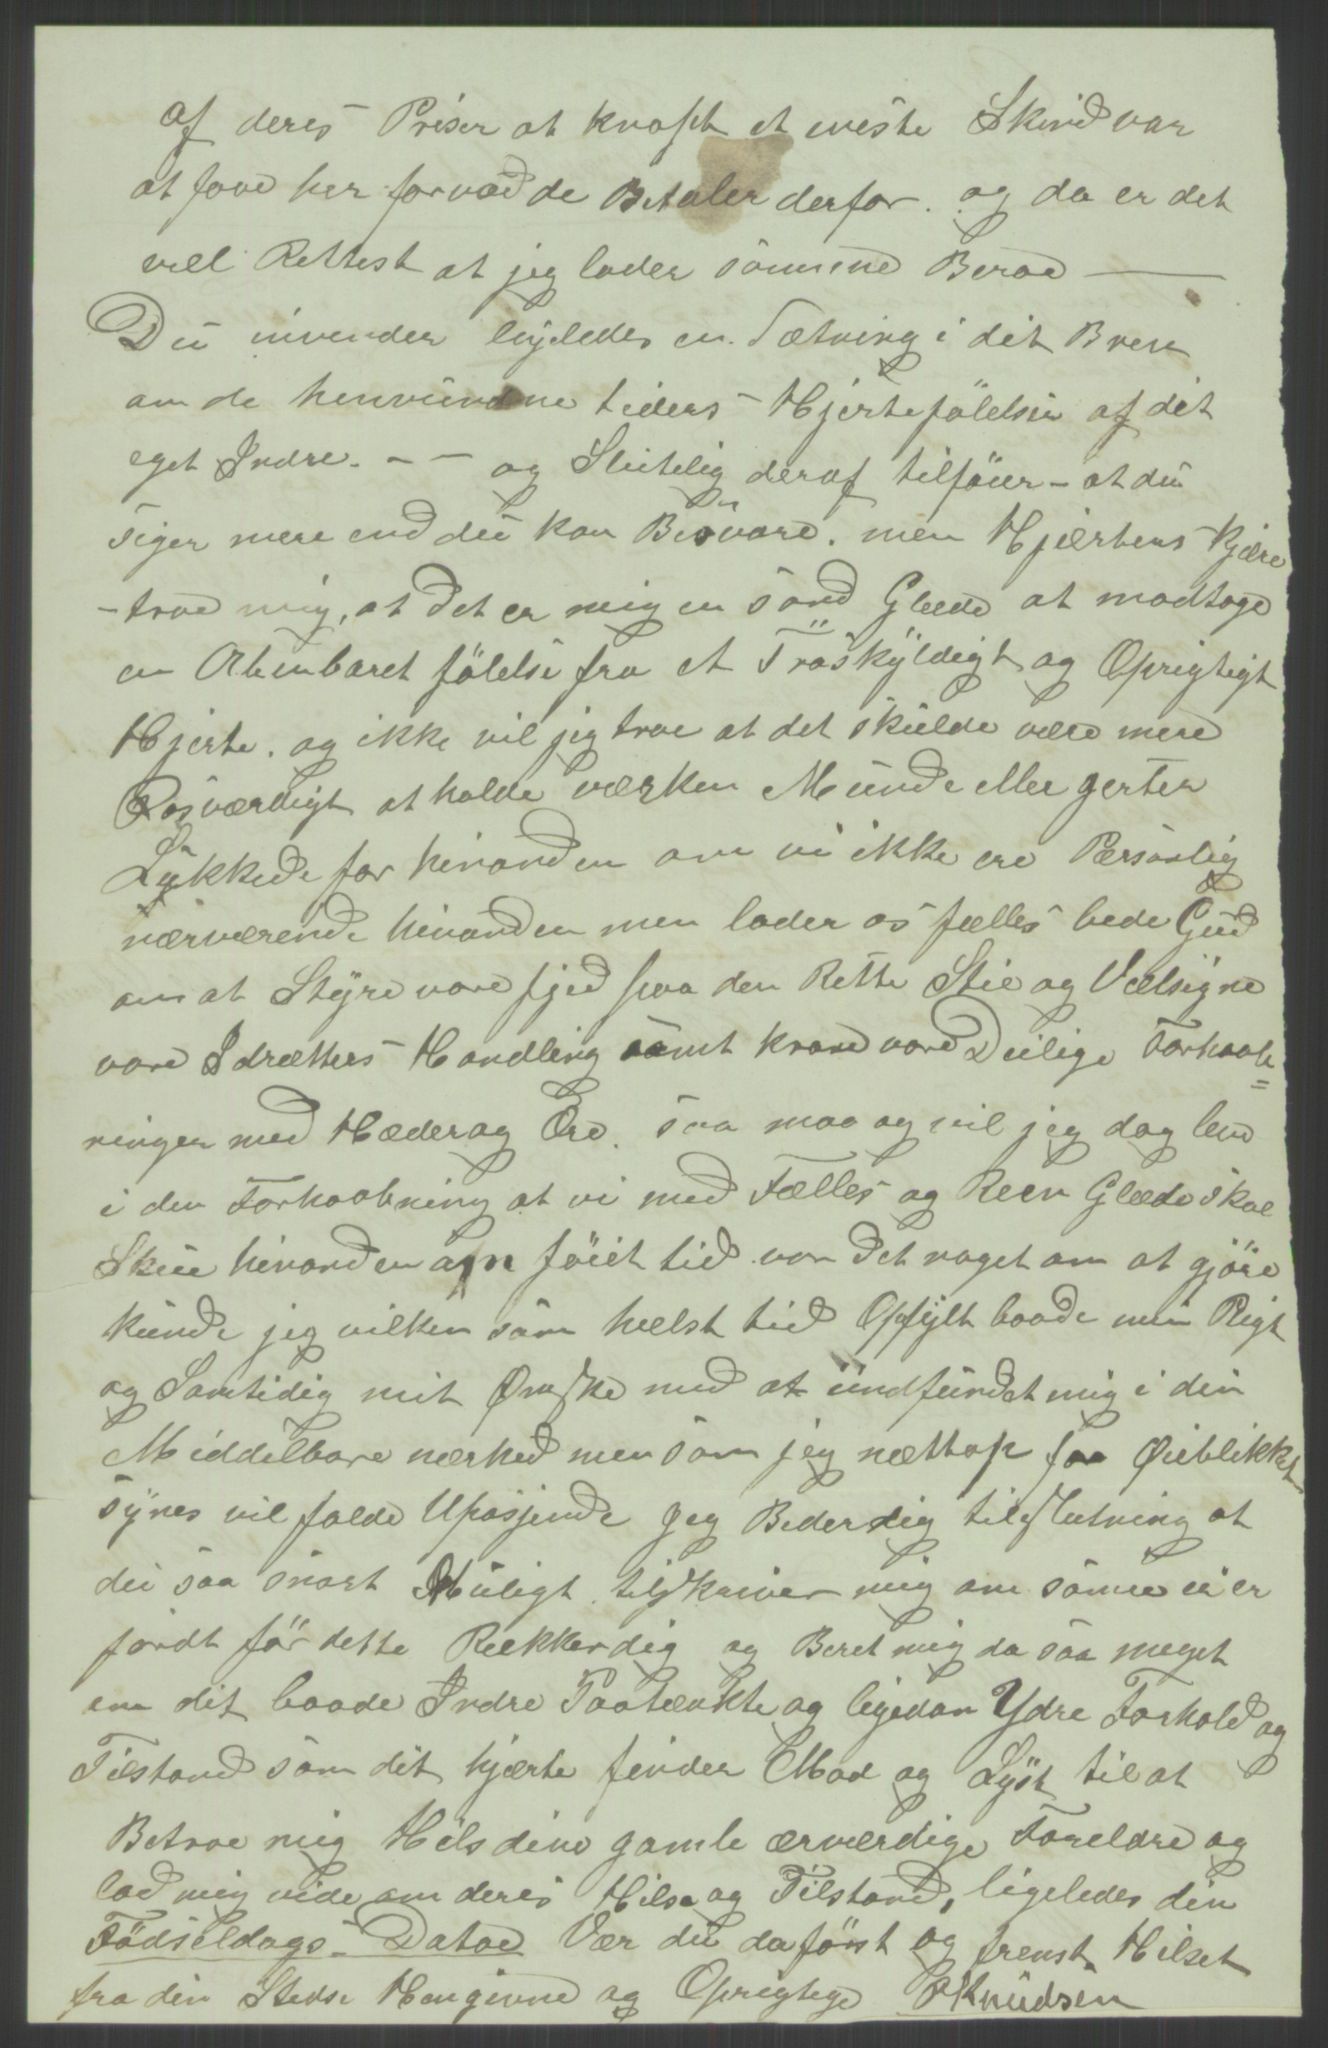 af deres Priser at knapt et eneste Skind var
at faae her forvad de Betaler derfor. og da er det
vel Rettest at jeg lader samme Beroe —
Du invender ligeledes en Sætning i dit Brev
om de henvundne tiders Hjertefölelser af dit
eget Indre. - — og Slutelig deraf tilföier - at du
siger mere end du kan Besvare. men Hjærtens Kjære
- troe mig, at det er mig en sand Glæde at modtage
en Abenbaret fölelse fra et Troskyldigt og Oprigtigt
Hjerte. og ikke vil jeg troe at det skulde være mere
Rosværdigt at holde værken Munde eller
Lukkede for hinanden om vi ikke ere Personlig
nærværende hinanden men lader os fælles bede Gud
om at Styre vore fjed paa den Rette Stie og Velsigne
vore Idrætters Handling samt krone vore Deilige Forhaab=
ninger med Hæder og Ære. saa maa og vil jeg dog leve
i den Forhaabning at vi med Fælles og Reen Glæde skal
Skue hinanden om föiet tid var det noget om at gjöre
kunde jeg vilken som helst tid Opfylt baade min Pligt
og Samtidig mit Ønske med at indfundet mig i din
Middelbare nærhed men som jeg nættop for Øieblikket
synes vil falde Upasjende Jeg Beder dig tilslutning at
du saa snart Muligt tilskriver mig om samme ei er
fördt för dette Rækker dig og Beret mig da saa meget
om dit baade Indre Paatænkte og ligedan Ydre Forhold og
Tilstand som dit hjærte finder Mod og Lyst til at
Betroe mig Hils dine gamle ærværdige Foreldre og
lad mig vide om deres Hilse og Tilstand, ligeledes din
Födseldags - Datoe Vær du da först og fremst Hilset
fra din Stedse Hengivne og Oprigtige PKnudsen